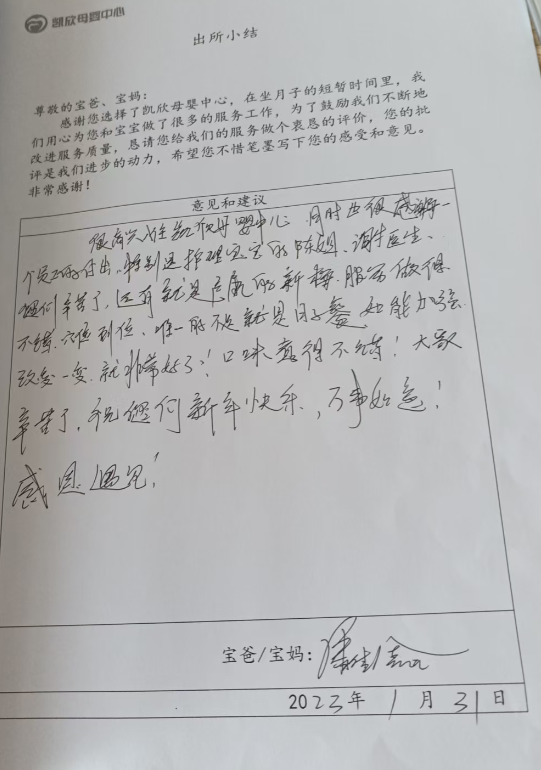 凯欣母婴中心
出所小结
尊敬的宝爸、宝妈：
感谢您选择了凯欣母婴中心，在坐月子的短暂时间里，我
们用心为您和宝宝做了很多的服务工作，为了鼓励我们不断地
改进服务质量，恳请您给我们的服务做个衷恳的评价，您的批
评是我们进步的动力，希望您不惜笔墨写下您的感受和意见。
非常感谢！
意见和建议
很高兴入住凯欣母婴中心 同时也很感谢每一
个员工的付出，特别是护理宝宝的陈姐、谢医生、
您们辛苦了，还有就是 的 服务做得
不错，六位到位，唯一的不足就是月子餐 如能加强
改变一变 就非常好了！口味觉得不错！大家
辛苦了，祝您们新年快乐，万事如意！
感恩遇见！
宝爸/宝妈：
2023年1月31日